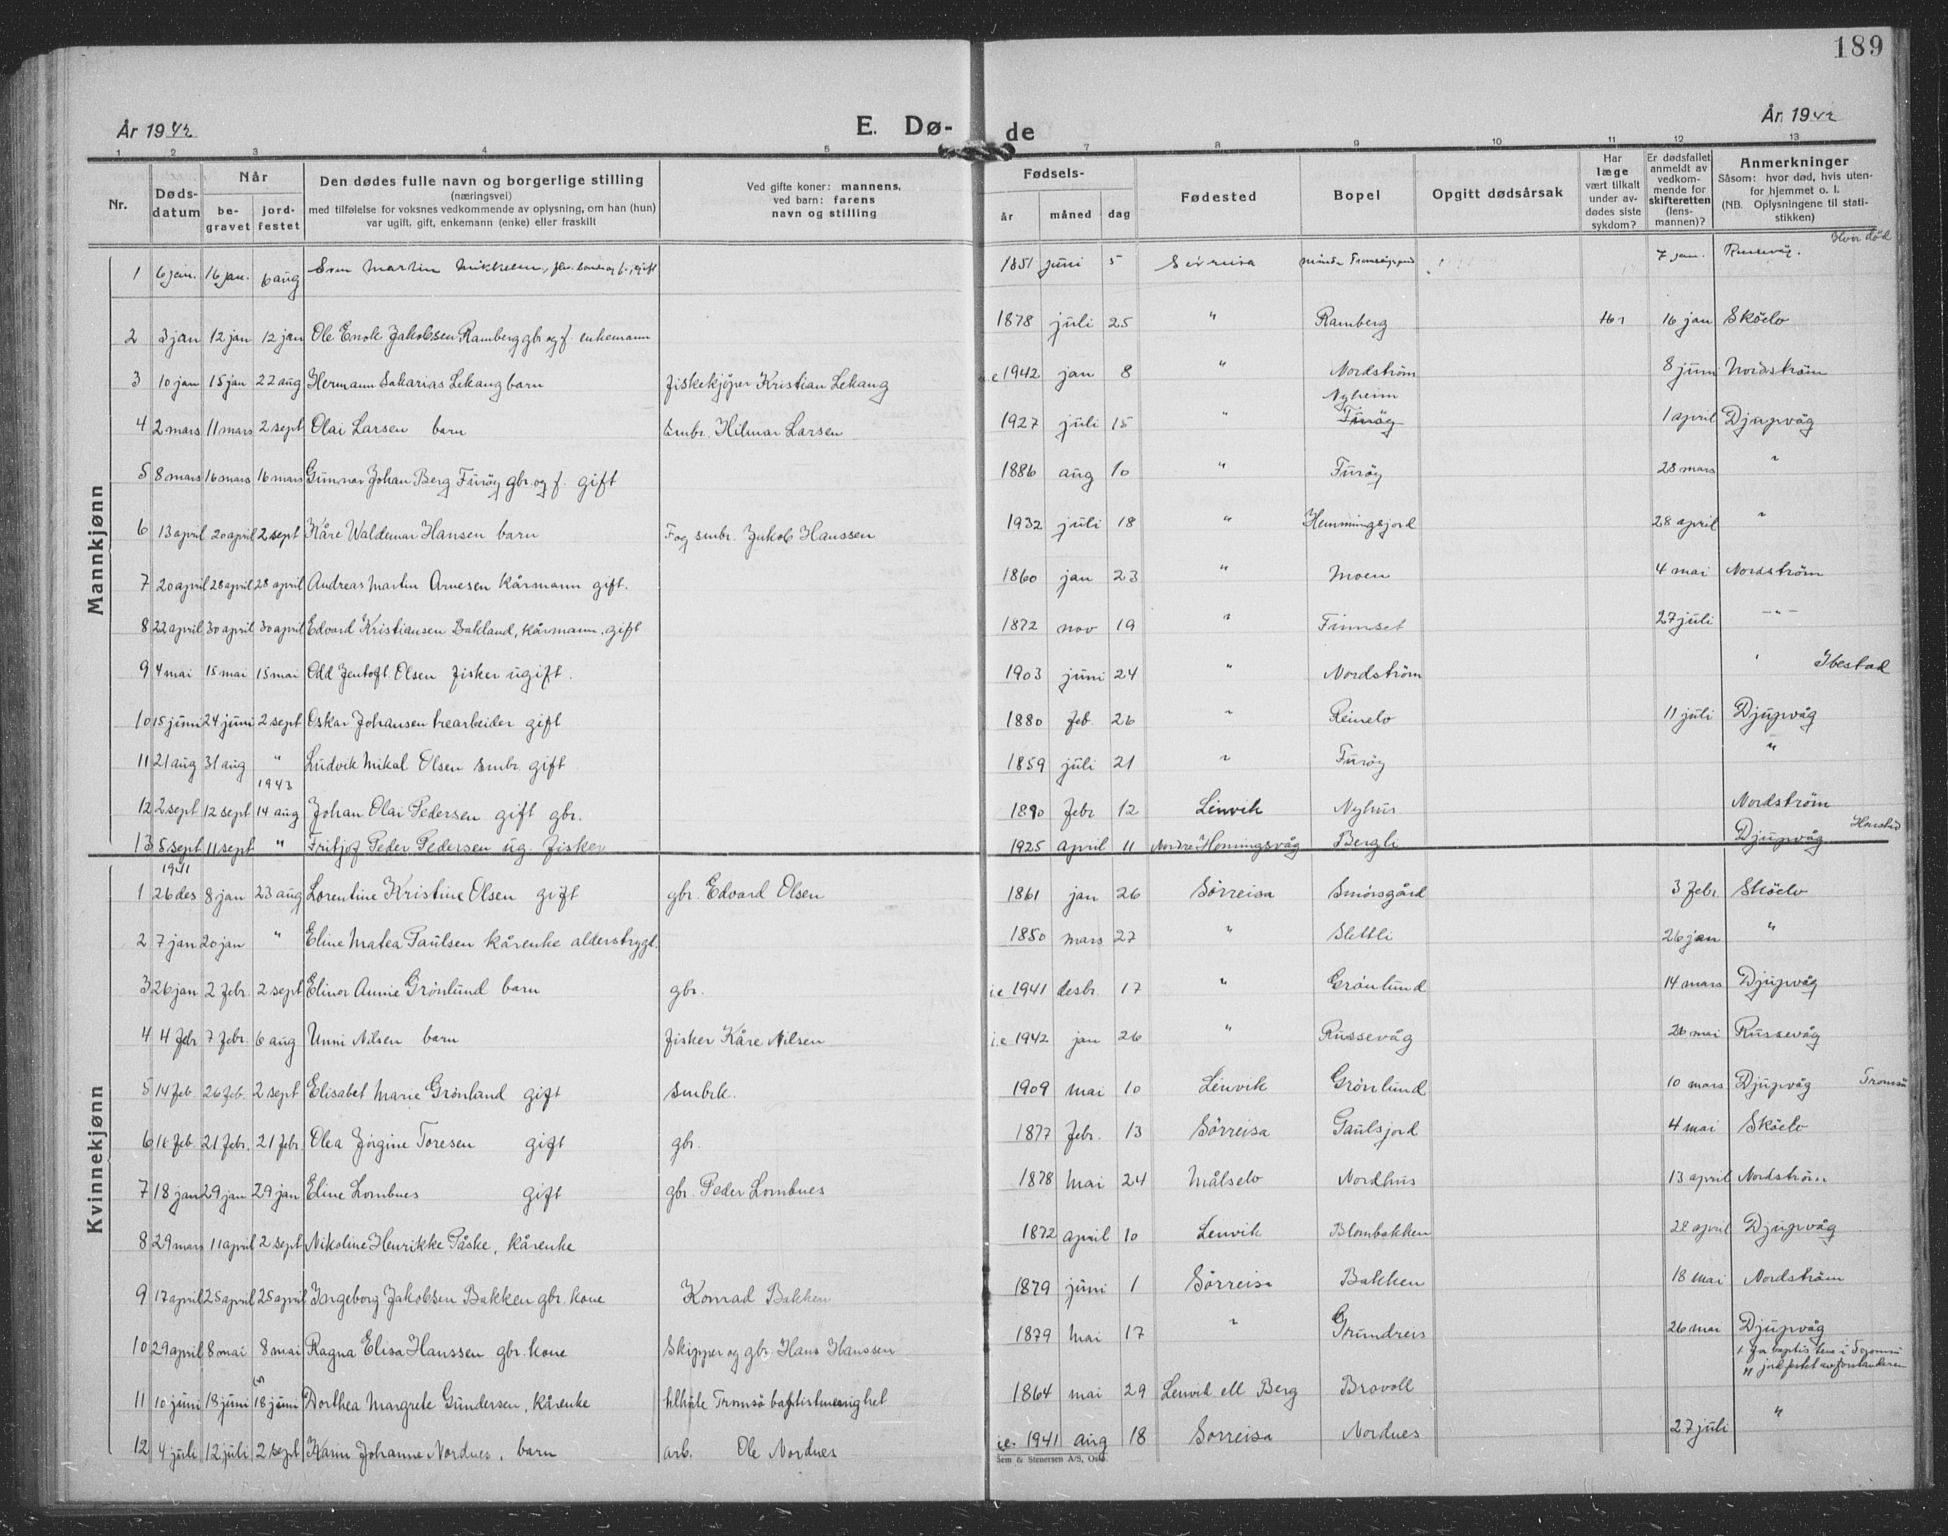 189
År 1942
E. Dø-
de
År 1942
1 2 3 4 5 7 8 9 10 11 12 13
Nr.
Døds-
datum
Når
be-
gravet
jord-
festet
Den dødes fulle navn og borgerlige stilling
(næringsvei)
med tilføielse for voksnes vedkommende av oplysning, om han (hun)
var ugift, gift, enkemann (enke) eller fraskilt
Ved gifte koner: mannens,
ved barn: farens
navn og stilling
Fødsels-
år måned dag
Fødested
Bopel
Opgitt dødsårsak
Har
læge
vært tilkalt
under av-
dødes siste
sykdom?
Er dødsfallet
anmeldt av
vedkom-
mende for
skifteretten
(lens-
mannen)?
Anmerkninger
Såsom: hvor død, hvis uten-
for hjemmet o. l.
(NB. Oplysningene til stati-
stikken)
Hvor død
Mannkjønn
1 6 jan. 16 jan. 6 aug Martin Mikkelsen, gift 1851 juni 5 7 jan.
2 3 jan 12 jan 12 jan Ole Enok Jakobsen Ramberg gbr og f. enkemann 1878 juli 25 " Ramberg 16 jan Sköelv
3 10 jan 15 jan 22 aug Hermann Sakarias Lekang barn fiskekjöper Kristian Lekang i.e 1942 jan 8 " Nordström 8 juni Nordström
4 2 mars 11 mars 2 sept Olai Larsen barn Smbr. Hilmar Larsen 1927 juli 15 " Nyheim Furöy 1 april Djupvåg
5 8 mars 16 mars 16 mars Gunnar Johan Berg Furöy gbr. og f. gift 1886 aug 10 " Furöy 28 mars "
6 13 april 20 april 2 sept Kåre Waldemar Hansen barn F og smbr. Jakob Hanssen 1932 juli 18 " Hemmingsjord 28 april "
7 20 april 28 april 28 april Andreas Martin Arnesen kårmann gift. 1860 jan 23 " Moen 4 mai Nordström
8 22 april 30 april 30 april Edvard Kristiansen Bakland, kårmann, gift 1872 nov 19 " Finnset 27 juli -"-
9 4 mai 15 mai 15 mai Odd Jentoft Olsen fisker ugift. 1903 juni 24 " Nordström Ibestad
10 15 juni 24 juni 2 sept Oskar Johansen trearbeider gift 1880 feb. 26 " Reinelv 11 juli Djupvåg
11 21 aug 31 aug " Ludvik Mikal Olsen smbr. gift 1859 juli 21 " Furöy "
1943
12 2 sept 12 sept 14 aug Johan Olai Pedersen gift gbr. 1890 febr 12 Lenvik Nyhus Nordström
13 5 sept 11 sept " Fritjof Peder Pedersen ug. fisker 1925 april 11 Honningsvåg Bergli Djupvåg Harstad
Kvinnekjønn
1941
1 26 des 8 jan 23 aug Lorentine Kristine Olsen gift gbr. Edvard Olsen 1861 jan 26 Sörreisa Smörsgård 3 febr Sköelv
2 7 jan 20 jan " Eline Matea Paulsen kårenke alderstrygd. 1850 mars 27 " Slettli 26 jan "
3 26 jan 2 febr. 2 sept Elinor Annie Grönlund barn gbr. i.e 1941 desbr. 17 " Grönlund 14 mars Djupvåg
4 4 febr 7 febr. 6 aug Unni Nilsen barn fisker Kåre Nilsen i.e 1942 jan 26 " Russevåg 26 mai Russevåg
5 14 feb. 26 feb. 2 sept Elisabet Marie Grönland gift smbrk. 1909 mai 10 Lenvik Grönlund 10 mars Djupvåg Tromsö
6 16 feb. 21 febr. 21 febr. Olea Jörgine Toresen gift gbr. 1877 febr. 13 Sörreisa Gaulsjord 4 mai Sköelv
7 18 jan 29 jan 29 jan Eline Lombnes gift gbr. Peder Lombnes 1878 mai 24 Målselv Nordhus 13 april Nordström
8 29 mars 11 april 2 sept Nikoline Henrikke Påske, kårenke 1872 april 10 Lenvik Blombakken 28 april Djupvåg
9 17 april 25 april 25 april Ingeborg Jakobsen Bakken gbr. kone Konrad Bakken 1879 juni 1 Sörreisa Bakken 18 mai Nordström
10 29 april 8 mai 8 mai Ragna Elisa Hanssen gbr. kone Skipper og gbr Hans Hanssen 1879 mai 17 " Grundreis 26 mai Djupvåg
baptistene i Tromsö
jordfestet av forstanderen
11 10 juni 18 juni 18 juni Dorthea Margrete Gundersen, kårenke tilhörte Tromsö baptistmenighet 1864 mai 29 Lenvik ell Berg Bravoll "
12 4 juli 12 juli 2 sept Karin Johanne Nordnes, barn arb. Ole Nordnes i.e. 1941 aug 18 Sörreisa Nordnes 27 juli
Sem & Stenersen A/S, Oslo.